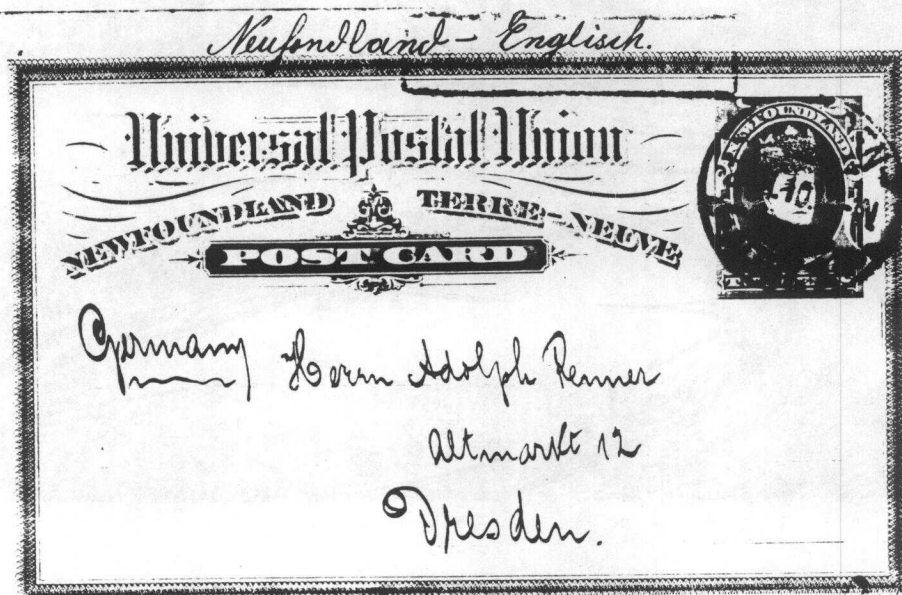 Neufondland - Englisch.
Universal Postal Union
NEWFOUNDLAND TERRE-NEUVE
POST CARD
NEWFOUNDLAND
10
Germany Herrn Adolph Renner
Altmarkt 12
Dresden.